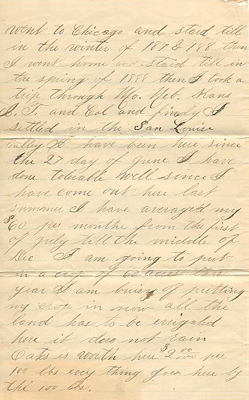 went to Chicago and staid till
in the winter of 187 & 188 then
I went home and staid till in
the spring of 1888 then I took a
trip through Mo. Neb. Kans
I. T and Col and finely I
settled in the San Louise
valley I have been here since
the 27 day of June I have
done tolerable well since I
have come out here last
summer I have averaged my
$60 per months from the first
of july till the middle of
Dec I am going to put
in a crop of 60 acres this
year I am buisy putting
my crop in now all the
land has to be irrigated
here it does not rain
Oats is worth here $2.00 per
100 lbs evry thing goes here by
the 100 lbs.